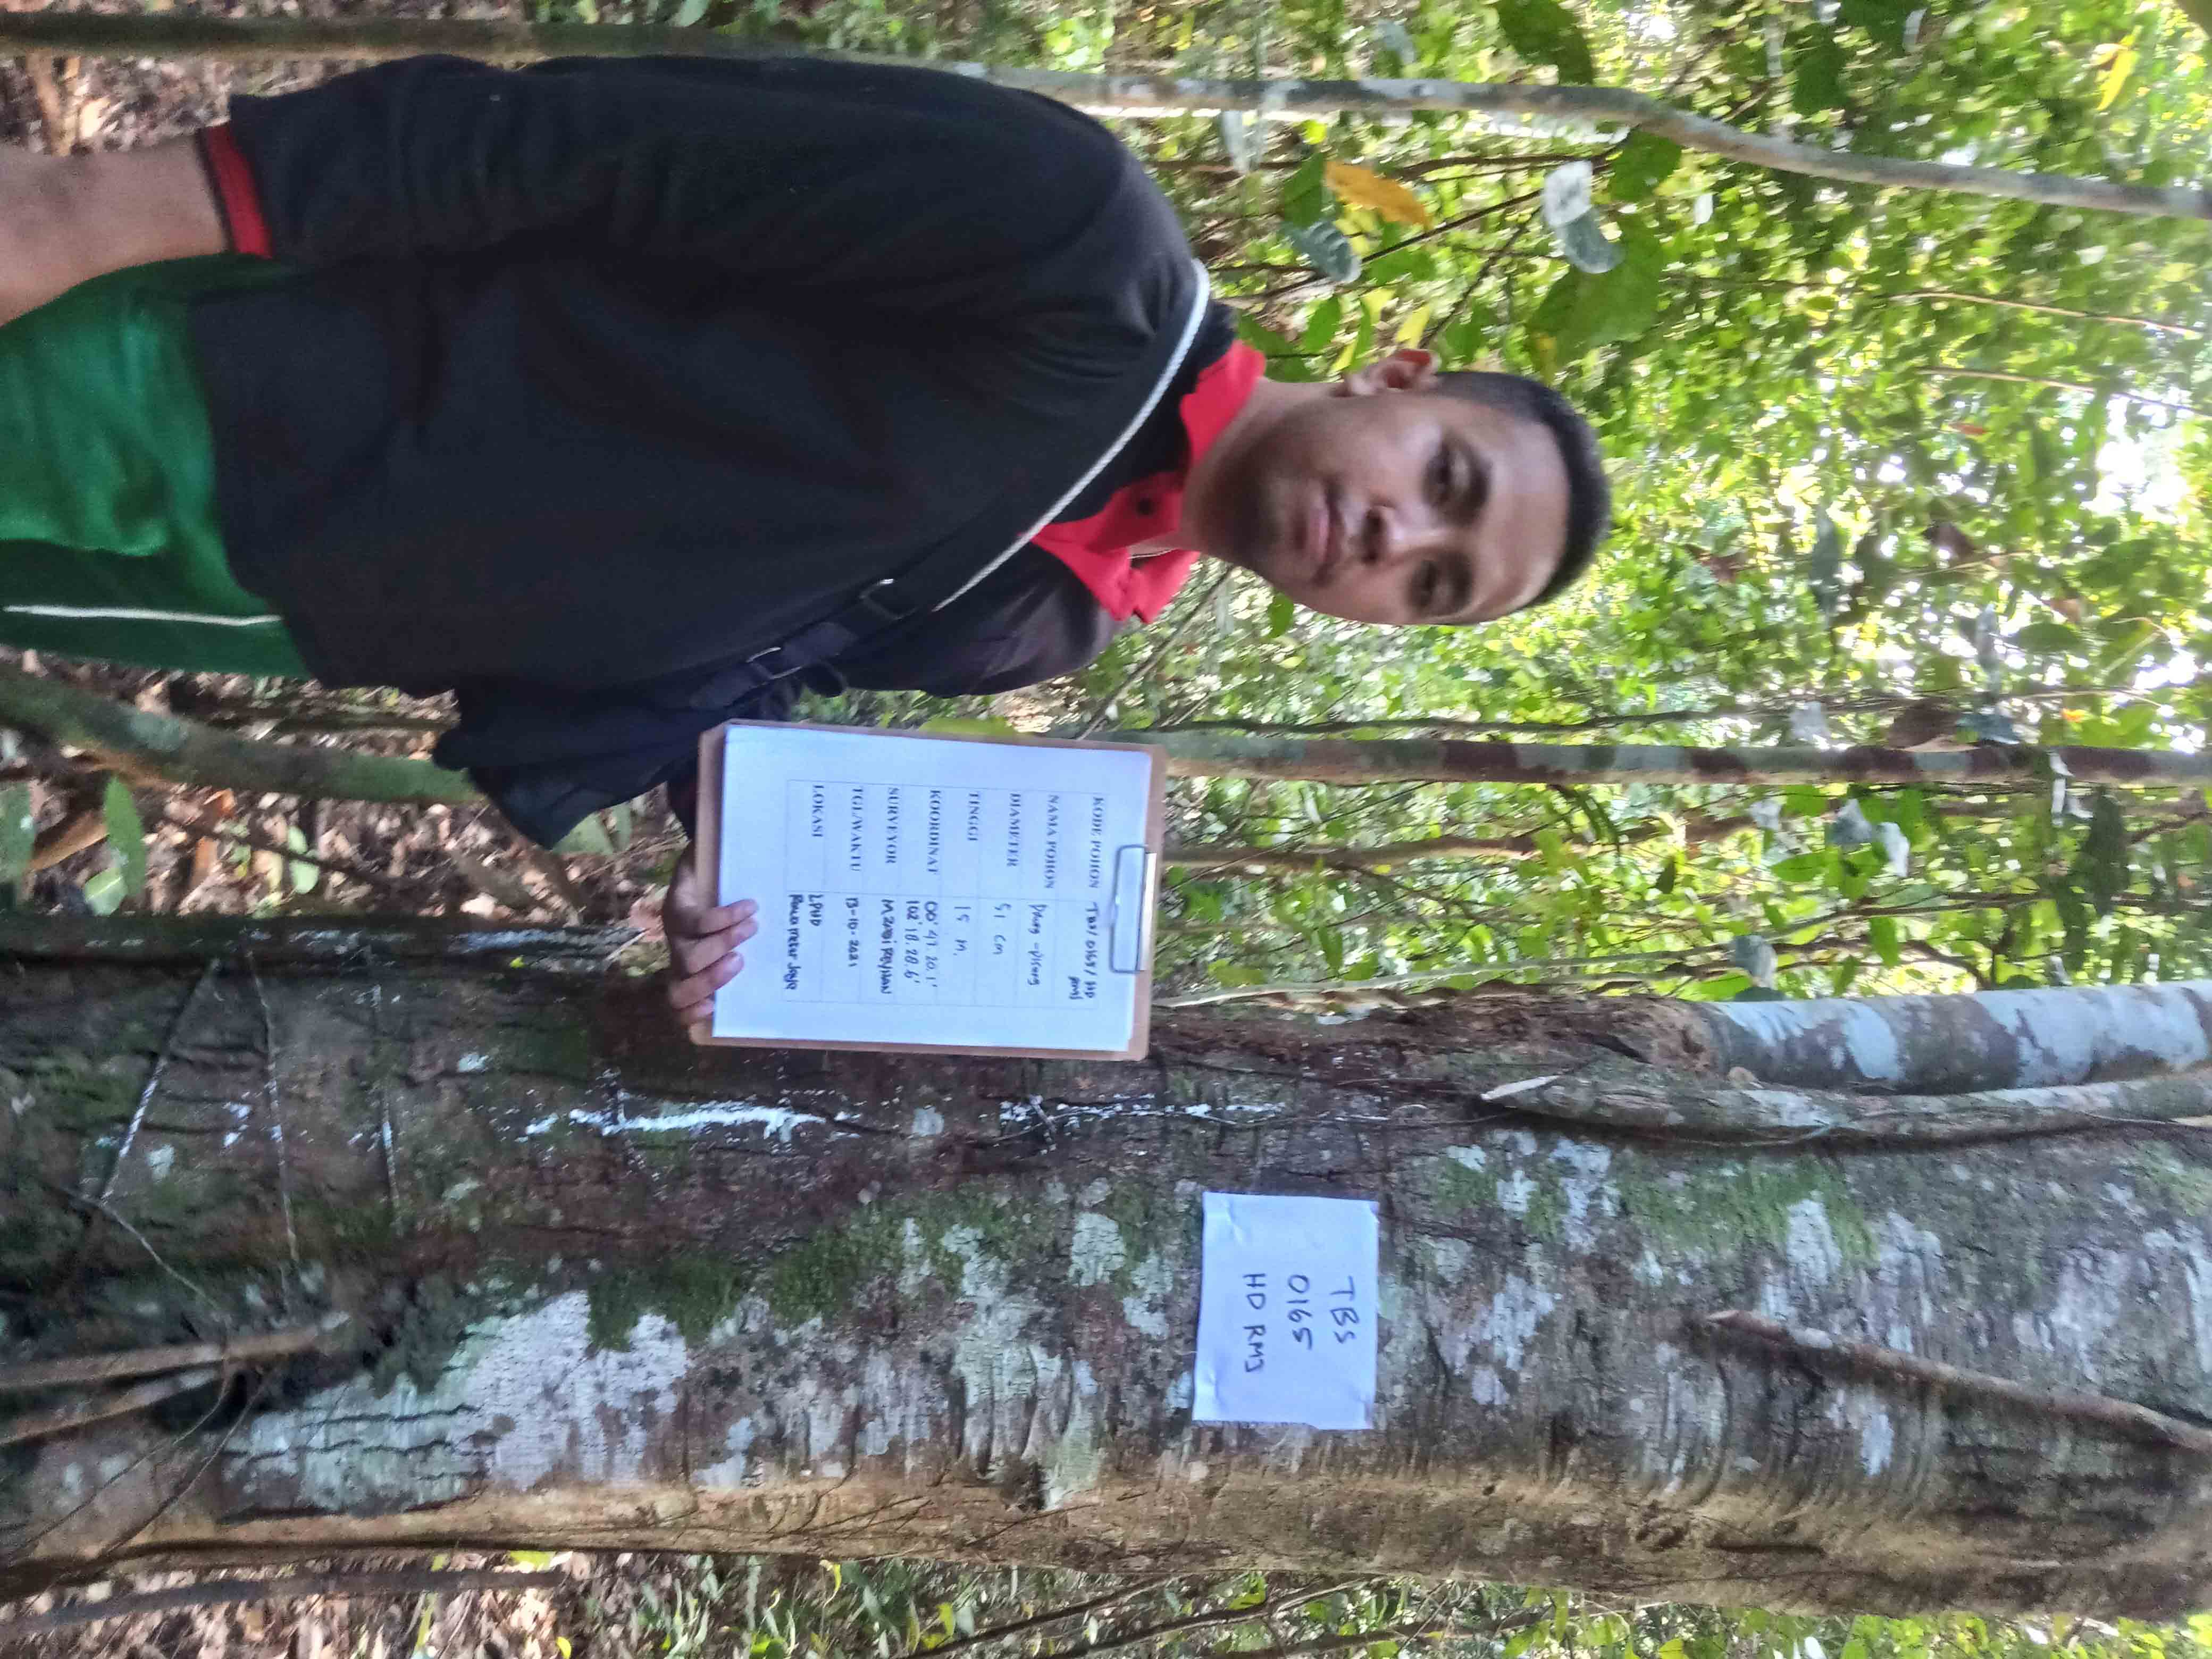 TBS
0165
HD RMJ
KODE POHON TBS/0165/HD
RMJ
NAMA POHON Pisang-pisang
DIAMETER 51 cm
TINGGI 15 m.
KOORDINAT 00° 47. 20. 1'
102° 18. 28. 6'
SURVEYOR M ZABI REYHAN
TGL/WAKTU 13-10-2021
LOKASI LPHD
Rawa mekar Jaya